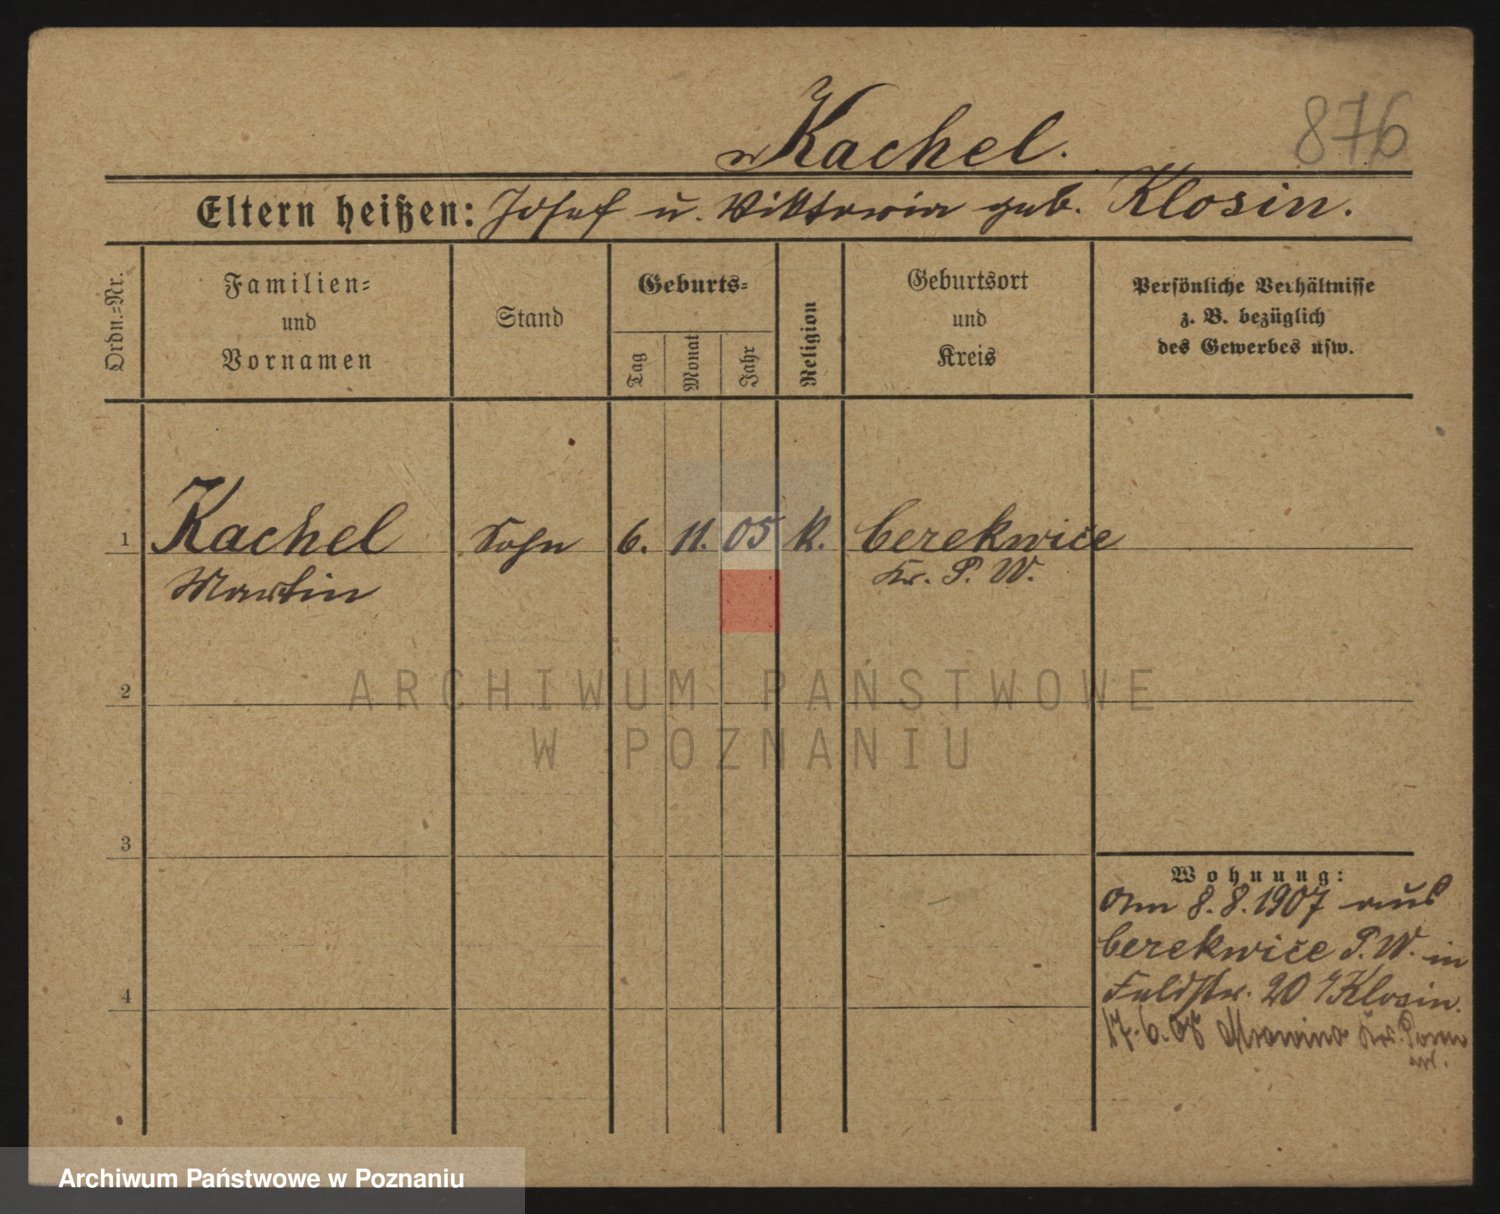 Kachel.
876
Eltern heißen: Josef u. Viktoria geb. Klosin.
Ordn.=Nr.
Familien= und Vornamen
Stand
Geburts=
Tag
Monat
Jahr
Religion
Geburtsort und Kreis
Persönliche Verhältnisse
z. B. bezüglich
des Gewerbes usw.
1 Kachel Sohn 6. 11. 05 K. Cerekwice
Martin Kr. P. W.
2
ARCHIWUM PAŃSTWOWE
W POZNANIU
3
Wohnung:
Am 8.8.1907 aus
Cerekwice P. W. in
Feldstr. 20 Klosin.
4
17.6.08 Kr. Posen
W.
Archiwum Państwowe w Poznaniu